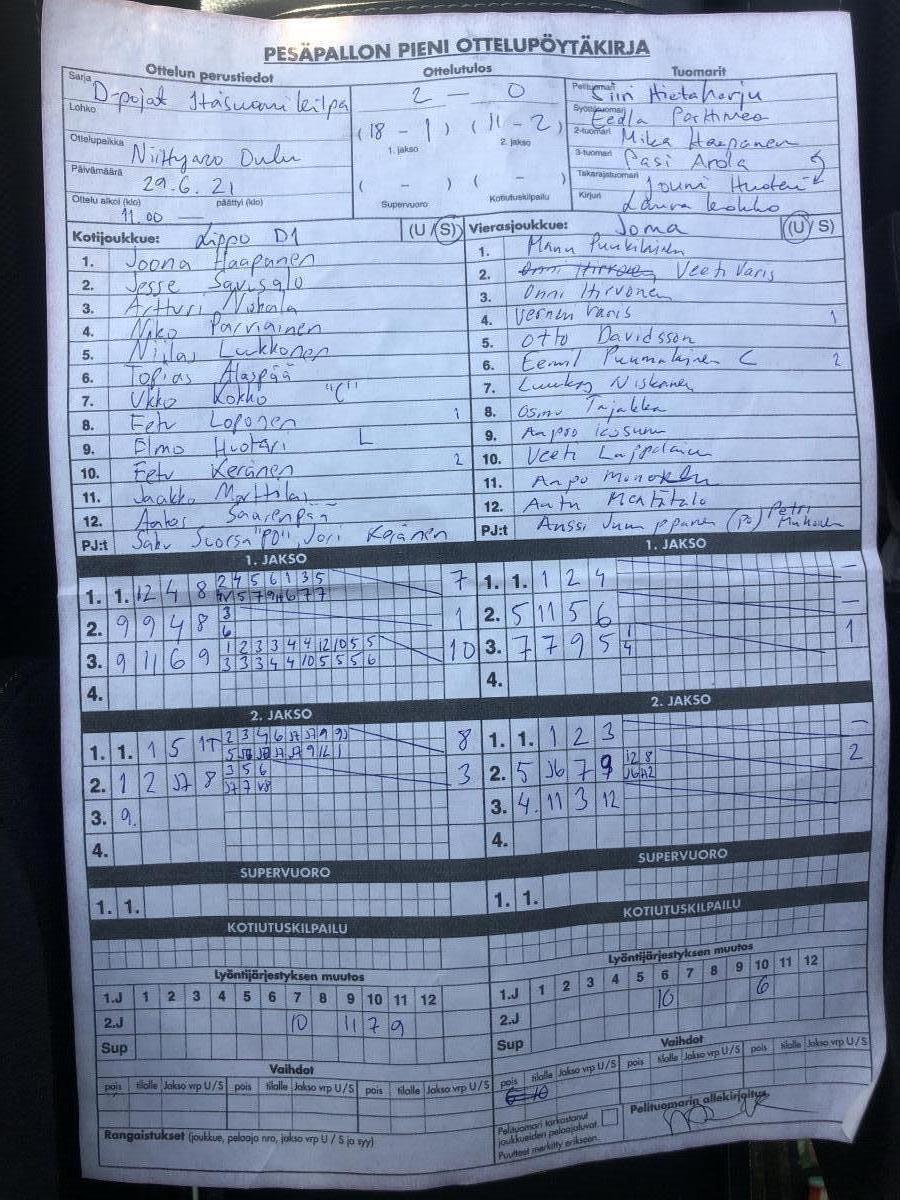 PESÄPALLON PIENI OTTELUPÖYTÄKIRJA
Ottelun perustiedot
Ottelutulos
Tuomarit
Sarja
D-pojat Itäsuomi leilpa
Lohko
Ottelupaikka
Niittyaro Oulu
Päivämäärä
29.6.21
Ottelu alkoi (klo) päättyi (klo)
11.00 —
2 - 0
(18 - 1) (11 - 2)
1. jakso 2. jakso
( - ) ( - )
Supervuoro Kotiutuskilpailu
Pelituomari Siiri Hietaharju
Syöttötuomari Eedla Parttimaa
2-tuomari Mika Haapanen
3-tuomari Pasi Arola
Takarajatuomari Jouni Huotari
Kirjuri Laura Kokko
Kotijoukkue: Lippo D1 (U / S)
1. Joona Haapanen
2. Jesse Savisalo
3. Artturi Nokala
4. Niko Parviainen
5. Niilas Luukkonen
6. Topias Alaspää
7. Ukko Kokko "C"
8. Eetu Loponen 1
9. Elmo Huotari L
10. Eetu Keränen 2
11. Jaakko Marttila
12. Aatos Saarenpää
PJ:t Saku Suorsa "PO", Jori Keränen
Vierasjoukkue: Joma (U / S)
1. Manu Puukilainen
2. Veeti Varis
3. Onni Hirvonen
4. Verneri Varis 1
5. Otto Davidsson
6. Eemil Puumalainen C 2
7. Luukas Niskanen
8. Osmu Tajakka
9. Aapro Kosunen
10. Veeti Lappalainen
11. Aapo Mononen
12. Aatu
PJ:t Anssi Jumppanen (PO) Petri
1. JAKSO
1. 1. 12 4 8 2 4 5 6 1 3 5 7
2. 9 9 4 8 3 1
6
3. 9 11 6 9 1 2 3 3 4 4 12 10 5 5 10
3 3 3 4 4 10 5 5 5 6
4.
1. JAKSO
1. 1. 1 2 4 –
2. 5 11 5 6 –
3. 7 7 9 5 1 1
4
4.
2. JAKSO
1. 1. 1 5 1T 2 3 4 6 J7 J7 9 9 8
2. 1 2 J7 8 3 5 6 3
J7 7 V8
3. 9.
4.
2. JAKSO
1. 1. 1 2 3 –
2. 5 J6 7 9 12 8 2
3. 4. 11 3 12
4.
SUPERVUORO
1. 1.
SUPERVUORO
1. 1.
KOTIUTUSKILPAILU
KOTIUTUSKILPAILU
Lyöntijärjestyksen muutos
1.J 1 2 3 4 5 6 7 8 9 10 11 12
2.J 10 11 7 9
Sup
Lyöntijärjestyksen muutos
1.J 1 2 3 4 5 6 7 8 9 10 11 12
2.J 10 6
Sup
Vaihdot
pois tilalle Jakso vrp U/S pois tilalle Jakso vrp U/S pois tilalle Jakso vrp U/S
Vaihdot
pois tilalle Jakso vrp U/S pois tilalle Jakso vrp U/S pois tilalle Jakso vrp U/S
6 10
Rangaistukset (joukkue, pelaaja nro, jakso vrp U / S ja syy)
Pelituomari tarkastanut
joukkueiden pelaajaluvat.
Puutteet merkitty erikseen.
Pelituomarin allekirjoitus